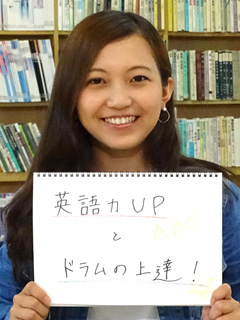 英語力UP
と
ドラムの上達!